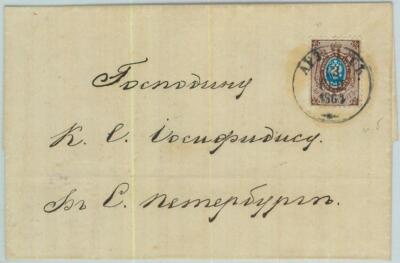 Господину
К. С. Іосифидису.
Въ С. Петербургѣ.
1863